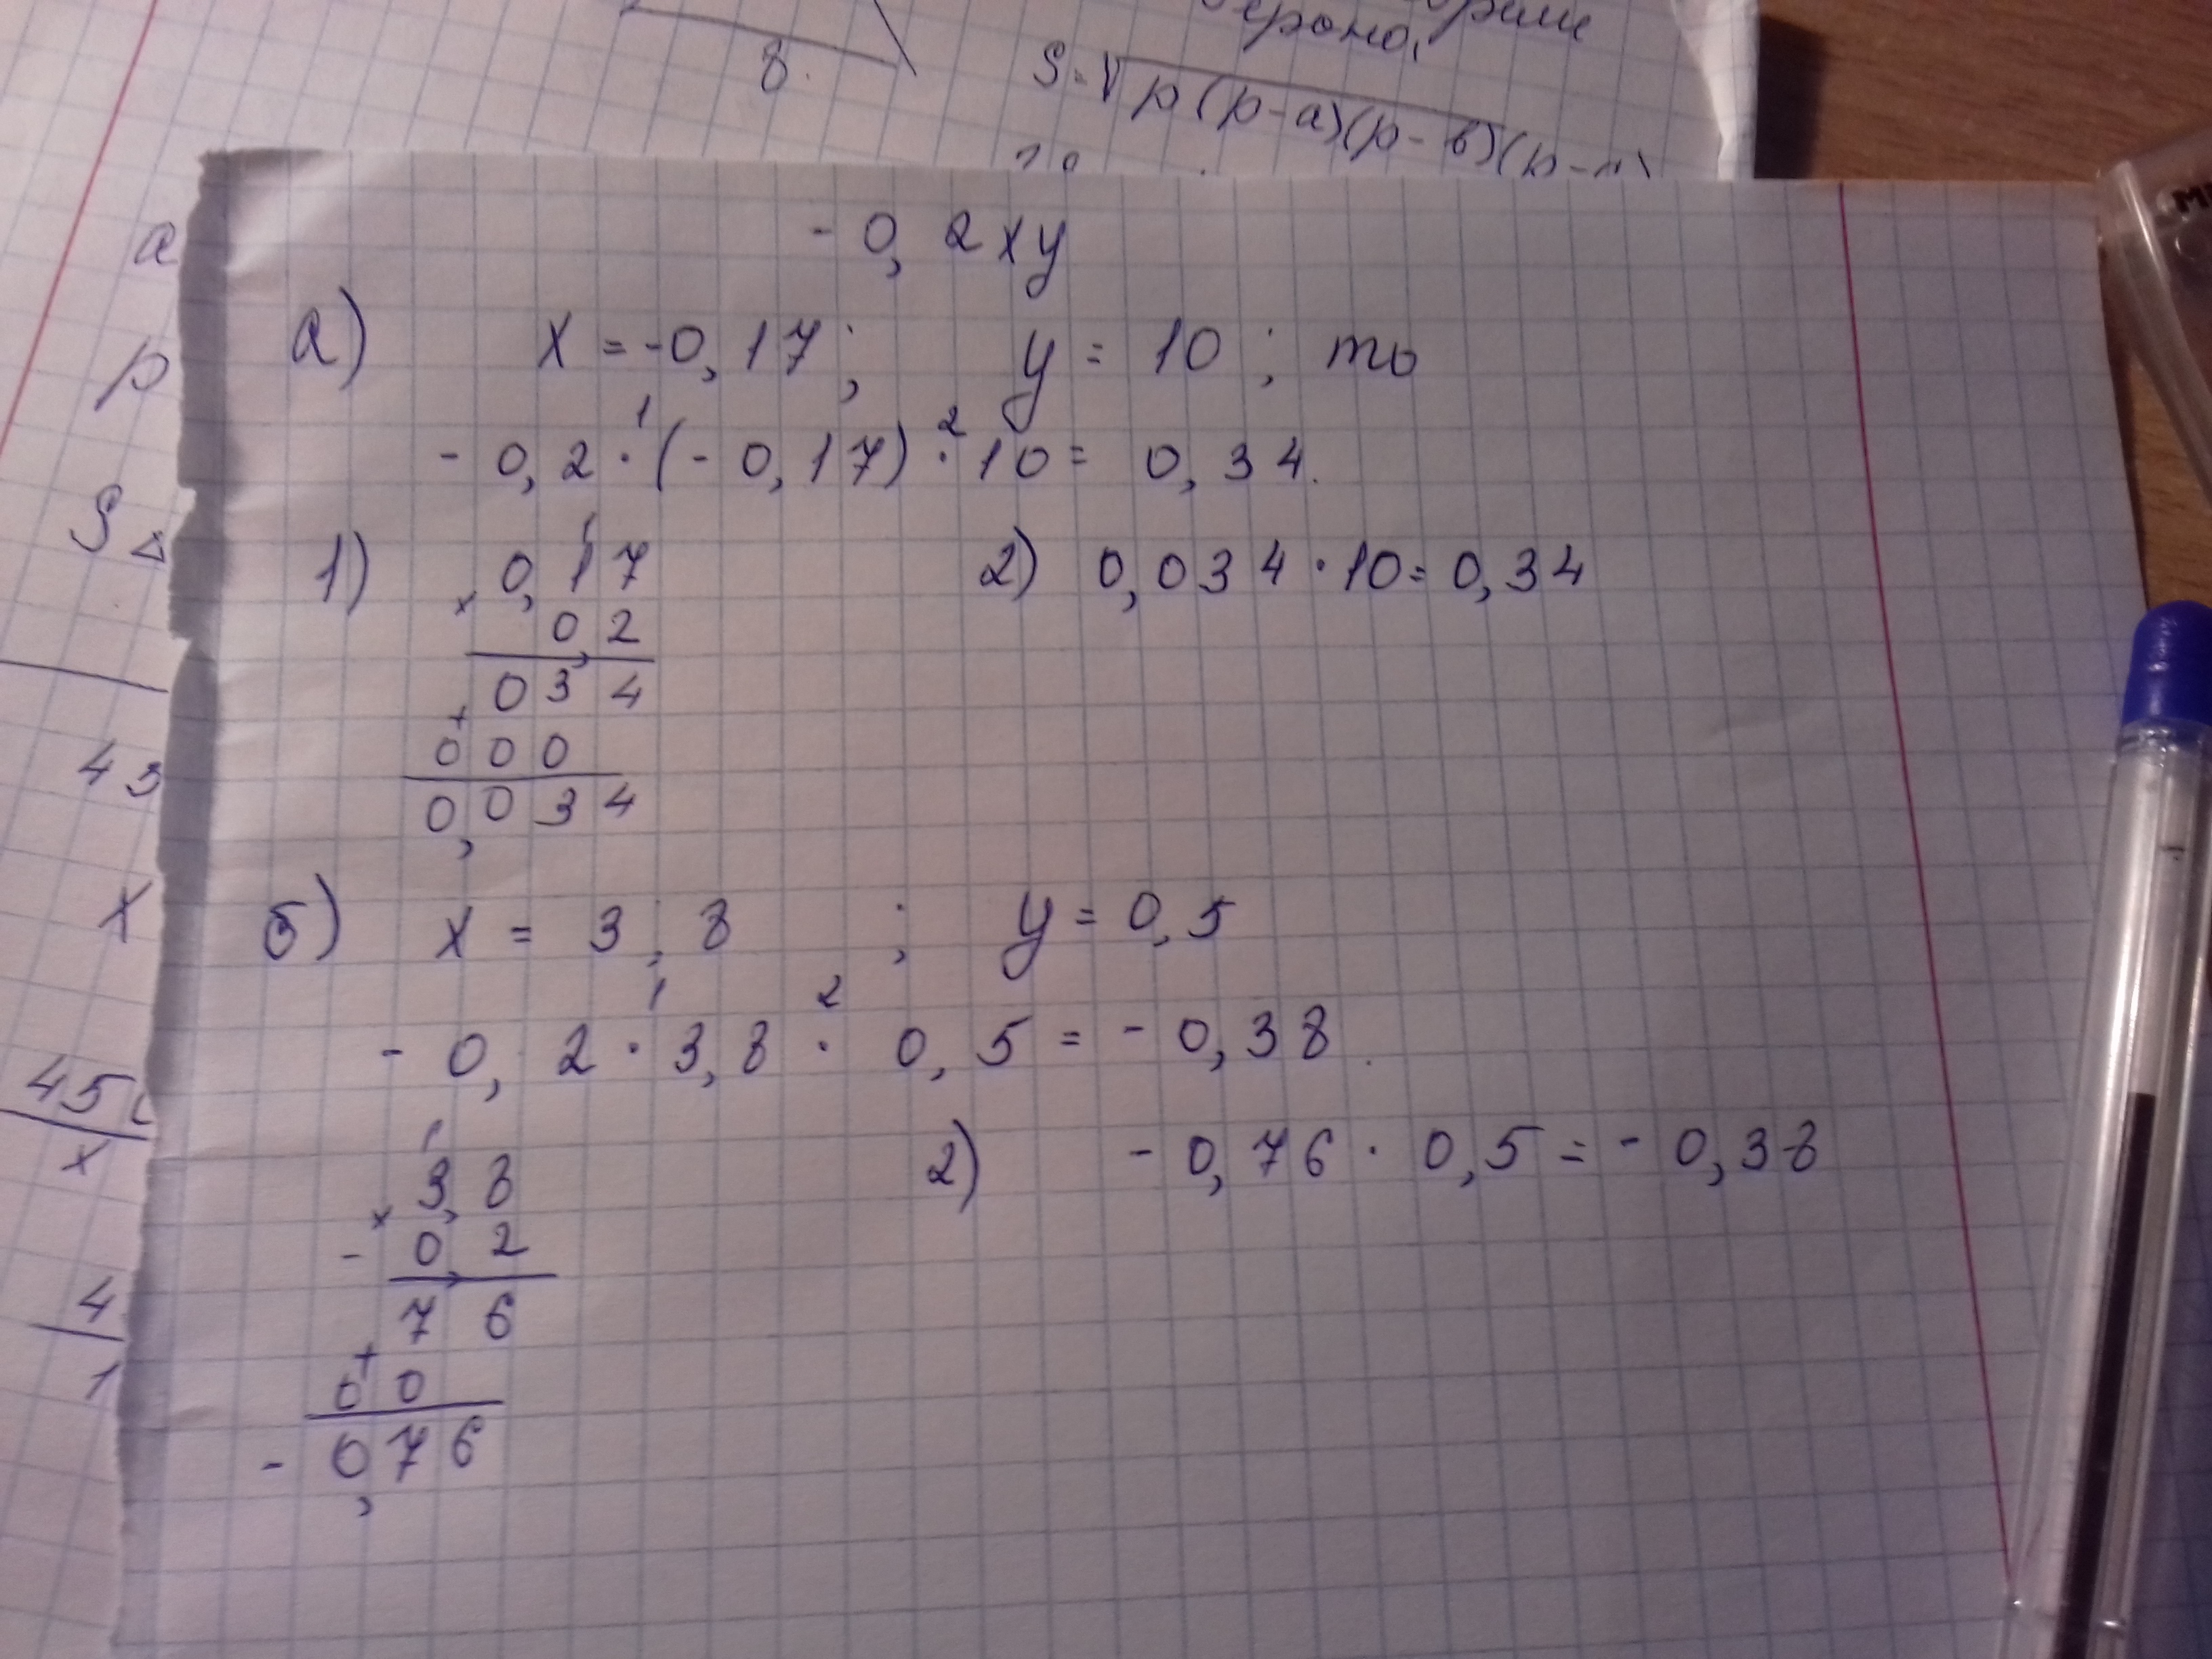 8.
S=√p(p-a)(p-в)(p-
a
p
S△
43
x
45
x
4
1
-0,2xy
а) x=-0,17; y=10; то
1 2
-0,2·(-0,17)·10=0,34.
1) 2) 0,034·10=0,34
1
0,17
×
0,2
034
+
000
0,034
б) x=3,8; y=0,5
1 2
-0,2·3,8·0,5=-0,38.
1
3,8 2) -0,76·0,5=-0,38
×
-0,2
76
+
00
-0,76